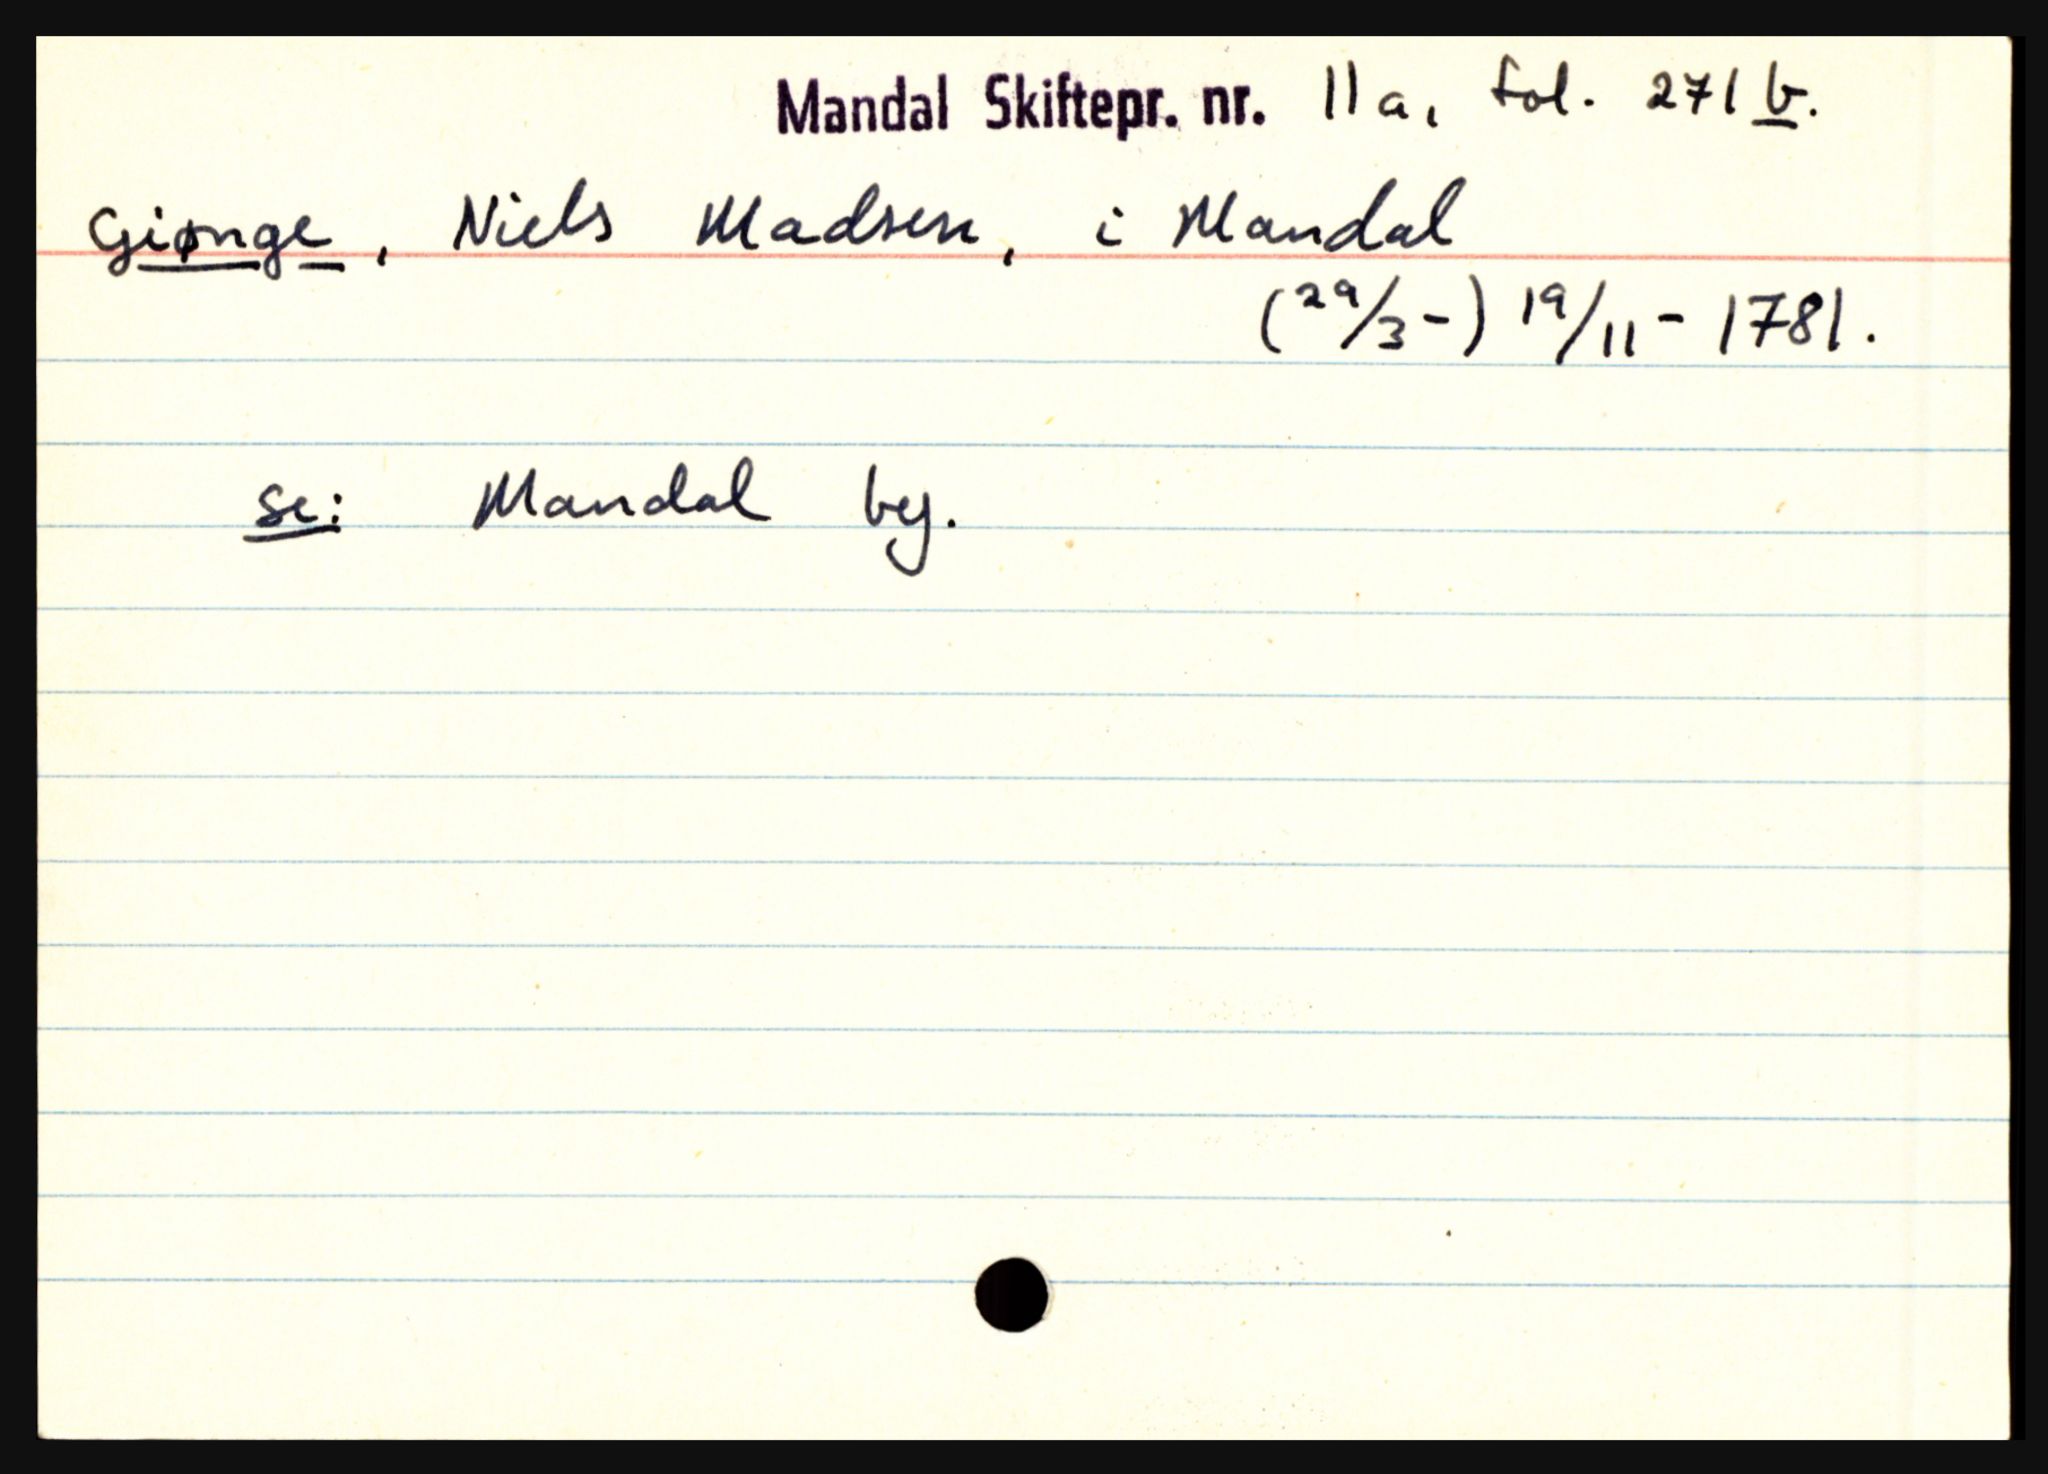 Mandal Skiftepr. nr. 11a, fol. 271 b.
Giønge, Niels Madsen, i Mandal
(29/3-) 19/11 - 1781.
se: Mandal by.